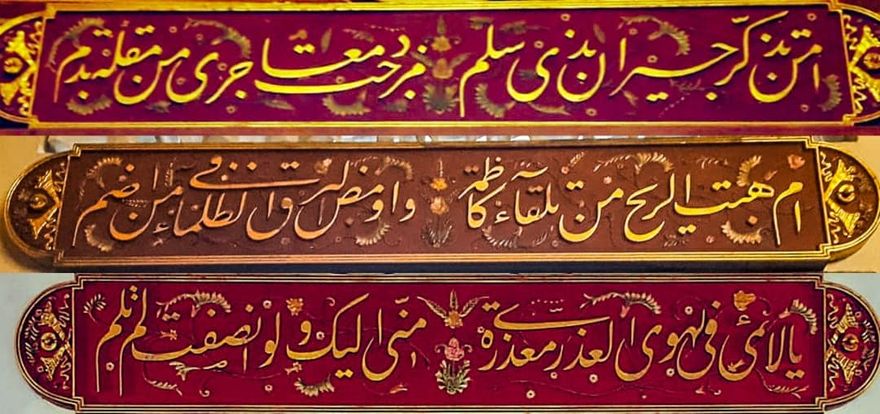 امن تذكر جيران بذى سلم مزجت دمعا جرى من مقلة بدم
ام هبت الريح من تلقاء كاظمة واومض البرق فى الظلماء من اضم
يا لائمى فى الهوى العذرى معذرة منى اليك ولو انصفت لم تلم